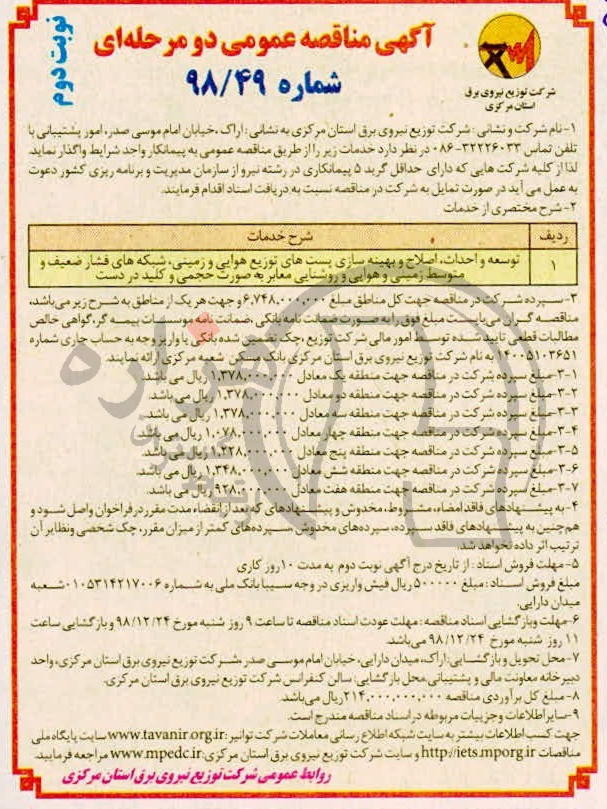 نوبت دوم
آگهی مناقصه عمومی دو مرحله‌ای
شماره ۹۸/۴۹
شرکت توزیع نیروی برق
استان مرکزی
۱-نام شرکت و نشانی : شرکت توزیع نیروی برق استان مرکزی به نشانی : اراک ،خیابان امام موسی صدر، امور پشتیبانی با
تلفن تماس ۳۲۲۲۶۰۳۳-۰۸۶ در نظر دارد خدمات زیر را از طریق مناقصه عمومی به پیمانکار واجد شرایط واگذار نماید.
لذا از کلیه شرکت هایی که دارای حداقل گرید ۵ پیمانکاری در رشته نیرو از سازمان مدیریت و برنامه ریزی کشور دعوت
به عمل می آید در صورت تمایل به شرکت در مناقصه نسبت به دریافت اسناد اقدام فرمایند.
۲-شرح مختصری از خدمات
ردیف شرح خدمات
۱ توسعه و احداث، اصلاح و بهینه سازی پست های توزیع هوایی و زمینی، شبکه های فشار ضعیف و
متوسط زمینی و هوایی و روشنایی معابر به صورت حجمی و کلید در دست
۳-سپرده شرکت در مناقصه جهت کل مناطق مبلغ ۶,۷۴۸,۰۰۰,۰۰۰ و جهت هر یک از مناطق به شرح زیر می‌باشد،
مناقصه گران می‌بایست مبلغ فوق را به صورت ضمانت نامه بانکی ،ضمانت نامه موسسات بیمه گر، گواهی خالص
مطالبات قطعی تایید شده توسط امور مالی شرکت توزیع ،چک تضمین شده بانکی یا واریز وجه به حساب جاری شماره
۱۴۰۰۵۱۰۳۶۵۱ به نام شرکت توزیع نیروی برق استان مرکزی بانک مسکن شعبه مرکزی ارائه نمایند.
۳-۱-مبلغ سپرده شرکت در مناقصه جهت منطقه یک معادل ۱,۳۷۸,۰۰۰,۰۰۰ ریال می باشد.
۳-۲-مبلغ سپرده شرکت در مناقصه جهت منطقه دو معادل ۱,۳۷۸,۰۰۰,۰۰۰ ریال می باشد.
۳-۳-مبلغ سپرده شرکت در مناقصه جهت منطقه سه معادل ۱,۳۷۸,۰۰۰,۰۰۰ ریال می باشد.
۳-۴-مبلغ سپرده شرکت در مناقصه جهت منطقه چهار معادل ۱,۰۷۸,۰۰۰,۰۰۰ ریال می باشد.
۳-۵-مبلغ سپرده شرکت در مناقصه جهت منطقه پنج معادل ۱,۲۲۸,۰۰۰,۰۰۰ ریال می باشد.
۳-۶-مبلغ سپرده شرکت در مناقصه جهت منطقه شش معادل ۱,۳۴۸,۰۰۰,۰۰۰ ریال می باشد.
۳-۷-مبلغ سپرده شرکت در مناقصه جهت منطقه هفت معادل ریال می باشد.
۴-به پیشنهادهای فاقد امضاء، مشروط، مخدوش و پیشنهادهای که بعد از انقضاء مدت مقرر در فراخوان واصل شود و
هم چنین به پیشنهادهای فاقد سپرده، سپرده‌های مخدوش ،سپرده‌های کمتر از میزان مقرر، چک شخصی ونظایر آن
ترتیب اثر داده نخواهد شد.
۵-مهلت فروش اسناد : از تاریخ درج آگهی نوبت دوم به مدت ۱۰روز کاری
مبلغ فروش اسناد : مبلغ ۵۰۰۰۰۰ ریال فیش واریزی در وجه سیبا بانک ملی به شماره ۰۱۰۵۳۱۴۲۱۷۰۰۶شعبه
میدان دارایی.
۶-مهلت وبازگشایی اسناد مناقصه : مهلت عودت اسناد مناقصه تا ساعت ۹ روز شنبه مورخ ۹۸/۱۲/۲۴ و بازگشایی ساعت
۱۱ روز شنبه مورخ ۹۸/۱۲/۲۴ می‌باشد.
۷-محل تحویل و بازگشایی:اراک، میدان دارایی، خیابان امام موسی صدر ،شرکت توزیع نیروی برق استان مرکزی، واحد
دبیرخانه معاونت مالی و پشتیبانی محل بازگشایی: سالن کنفرانس شرکت توزیع نیروی برق استان مرکزی.
۸-مبلغ کل برآوردی مناقصه ۲۱۴,۰۰۰,۰۰۰,۰۰۰ریال می‌باشد.
۹-سایر اطلاعات و جزییات مربوطه در اسناد مناقصه مندرج است.
جهت کسب اطلاعات بیشتر به سایت شبکه اطلاع رسانی معاملات شرکت توانیر:www.tavanir.org.ir سایت پایگاه ملی
مناقصات http://iets.mporg.ir و سایت شرکت توزیع نیروی برق استان مرکزی:www.mpedc.ir مراجعه فرمایید.
روابط عمومی شرکت توزیع نیروی برق استان مرکزی